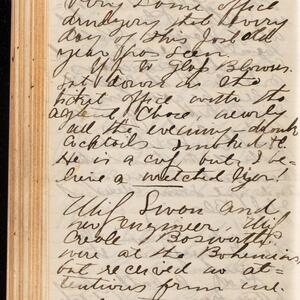 Very same office
drudgery that every
day of this lost old
year has seen.
Glass Blower
sat down in the
ticket office with the
agent Chase, nearly
all the evening drank
Cocktails - smoked &c
He is a but, I be-
lieve a wretched
Miss Swan and
new engineer, Miss
Creole Bosworth
were at the Bohemian
but received no at-
tentions from me.